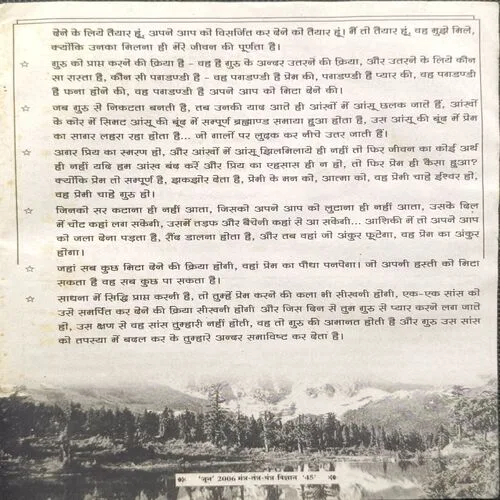 देने के लिये तैयार हूं, अपने आप को विसर्जित कर देने को तैयार हूं। मैं तो तैयार हूं, वह मुझे मिलें,
क्योंकि उनका मिलना ही मेरे जीवन की पूर्णता है।
☆ गुरु को प्राप्त करने की क्रिया है - वह है गुरु के अन्दर उतरने की क्रिया, और उतरने के लिये कौन
सा रास्ता है, कौन सी पगडण्डी है - वह पगडण्डी है प्रेम की, पगडण्डी है प्यार की, वह पगडण्डी
है फना होने की, वह पगडण्डी है अपने आप को मिटा देने की।
☆ जब गुरु से निकटता बनती है, तब उनकी याद आते ही आंखों में आंसू छलक जाते हैं, आंखों
के कोर में सिमट आंसू की बूंद में सम्पूर्ण ब्रह्माण्ड समाया हुआ होता है, उस आंसू की बूंद में प्रेम
का सागर लहरा रहा होता है... जो गालों पर लुढ़क कर नीचे उतर जाती हैं।
☆ अगर प्रिय का स्मरण हो, और आंखों में आंसू झिलमिलाये ही नहीं तो फिर जीवन का कोई अर्थ
ही नहीं यदि हम आंख बंद करें और प्रिय का एहसास ही न हो, तो फिर प्रेम ही कैसा हुआ?
क्योंकि प्रेम तो सम्पूर्ण है, झकझोर देता है, प्रेमी के मन को, आत्मा को, वह प्रेमी चाहे ईश्वर हो,
वह प्रेमी चाहे गुरु हो।
☆ जिनको सर कटाना ही नहीं आता, जिसको अपने आप को लुटाना ही नहीं आता, उसके दिल
में चोट कहां लग सकेगी, उसमें तड़फ और बैचेनी कहां से आ सकेगी... आशिकी में तो अपने आप
को जला देना पड़ता है, रौंद डालना होता है, और तब वहां जो अंकुर फूटेगा, वह प्रेम का अंकुर
होगा।
☆ जहां सब कुछ मिटा देने की क्रिया होगी, वहां प्रेम का पौधा पनपेगा। जो अपनी हस्ती को मिटा
सकता है वह सब कुछ पा सकता है।
☆ साधना में सिद्धि प्राप्त करनी है, तो तुम्हें प्रेम करने की कला भी सीखनी होगी, एक-एक सांस को
उसे समर्पित कर देने की क्रिया सीखनी होगी और जिस दिन से तुम गुरु से प्यार करने लग जाते
हो, उस क्षण से वह सांस तुम्हारी नहीं होती, वह तो गुरु की अमानत होती है और गुरु उस सांस
को तपस्या में बदल कर के तुम्हारे अन्दर समाविष्ट कर देता है।
'जून' 2006 मंत्र-तंत्र-यंत्र विज्ञान '45'